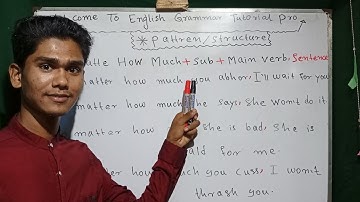 come To English Grammar Tutorial Pro
*Pattren/structure
How Much+Sub+Maim Verb, Sentence
matter how much you abhor, I'll wait for you
matter how much she says, She Won't do it
matter how she is bad, She is
ld for me.
how much you cuss, I won't
thrash you.